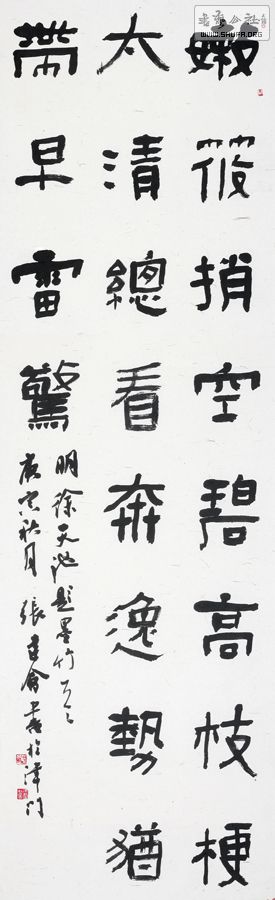 嫩筱捎空碧高枝梗
太清總看奔逸勢猶
帶早雷驚
明徐天池題墨竹
庚寅秋月 張建會書於津門
WWW.SHUFA.ORG